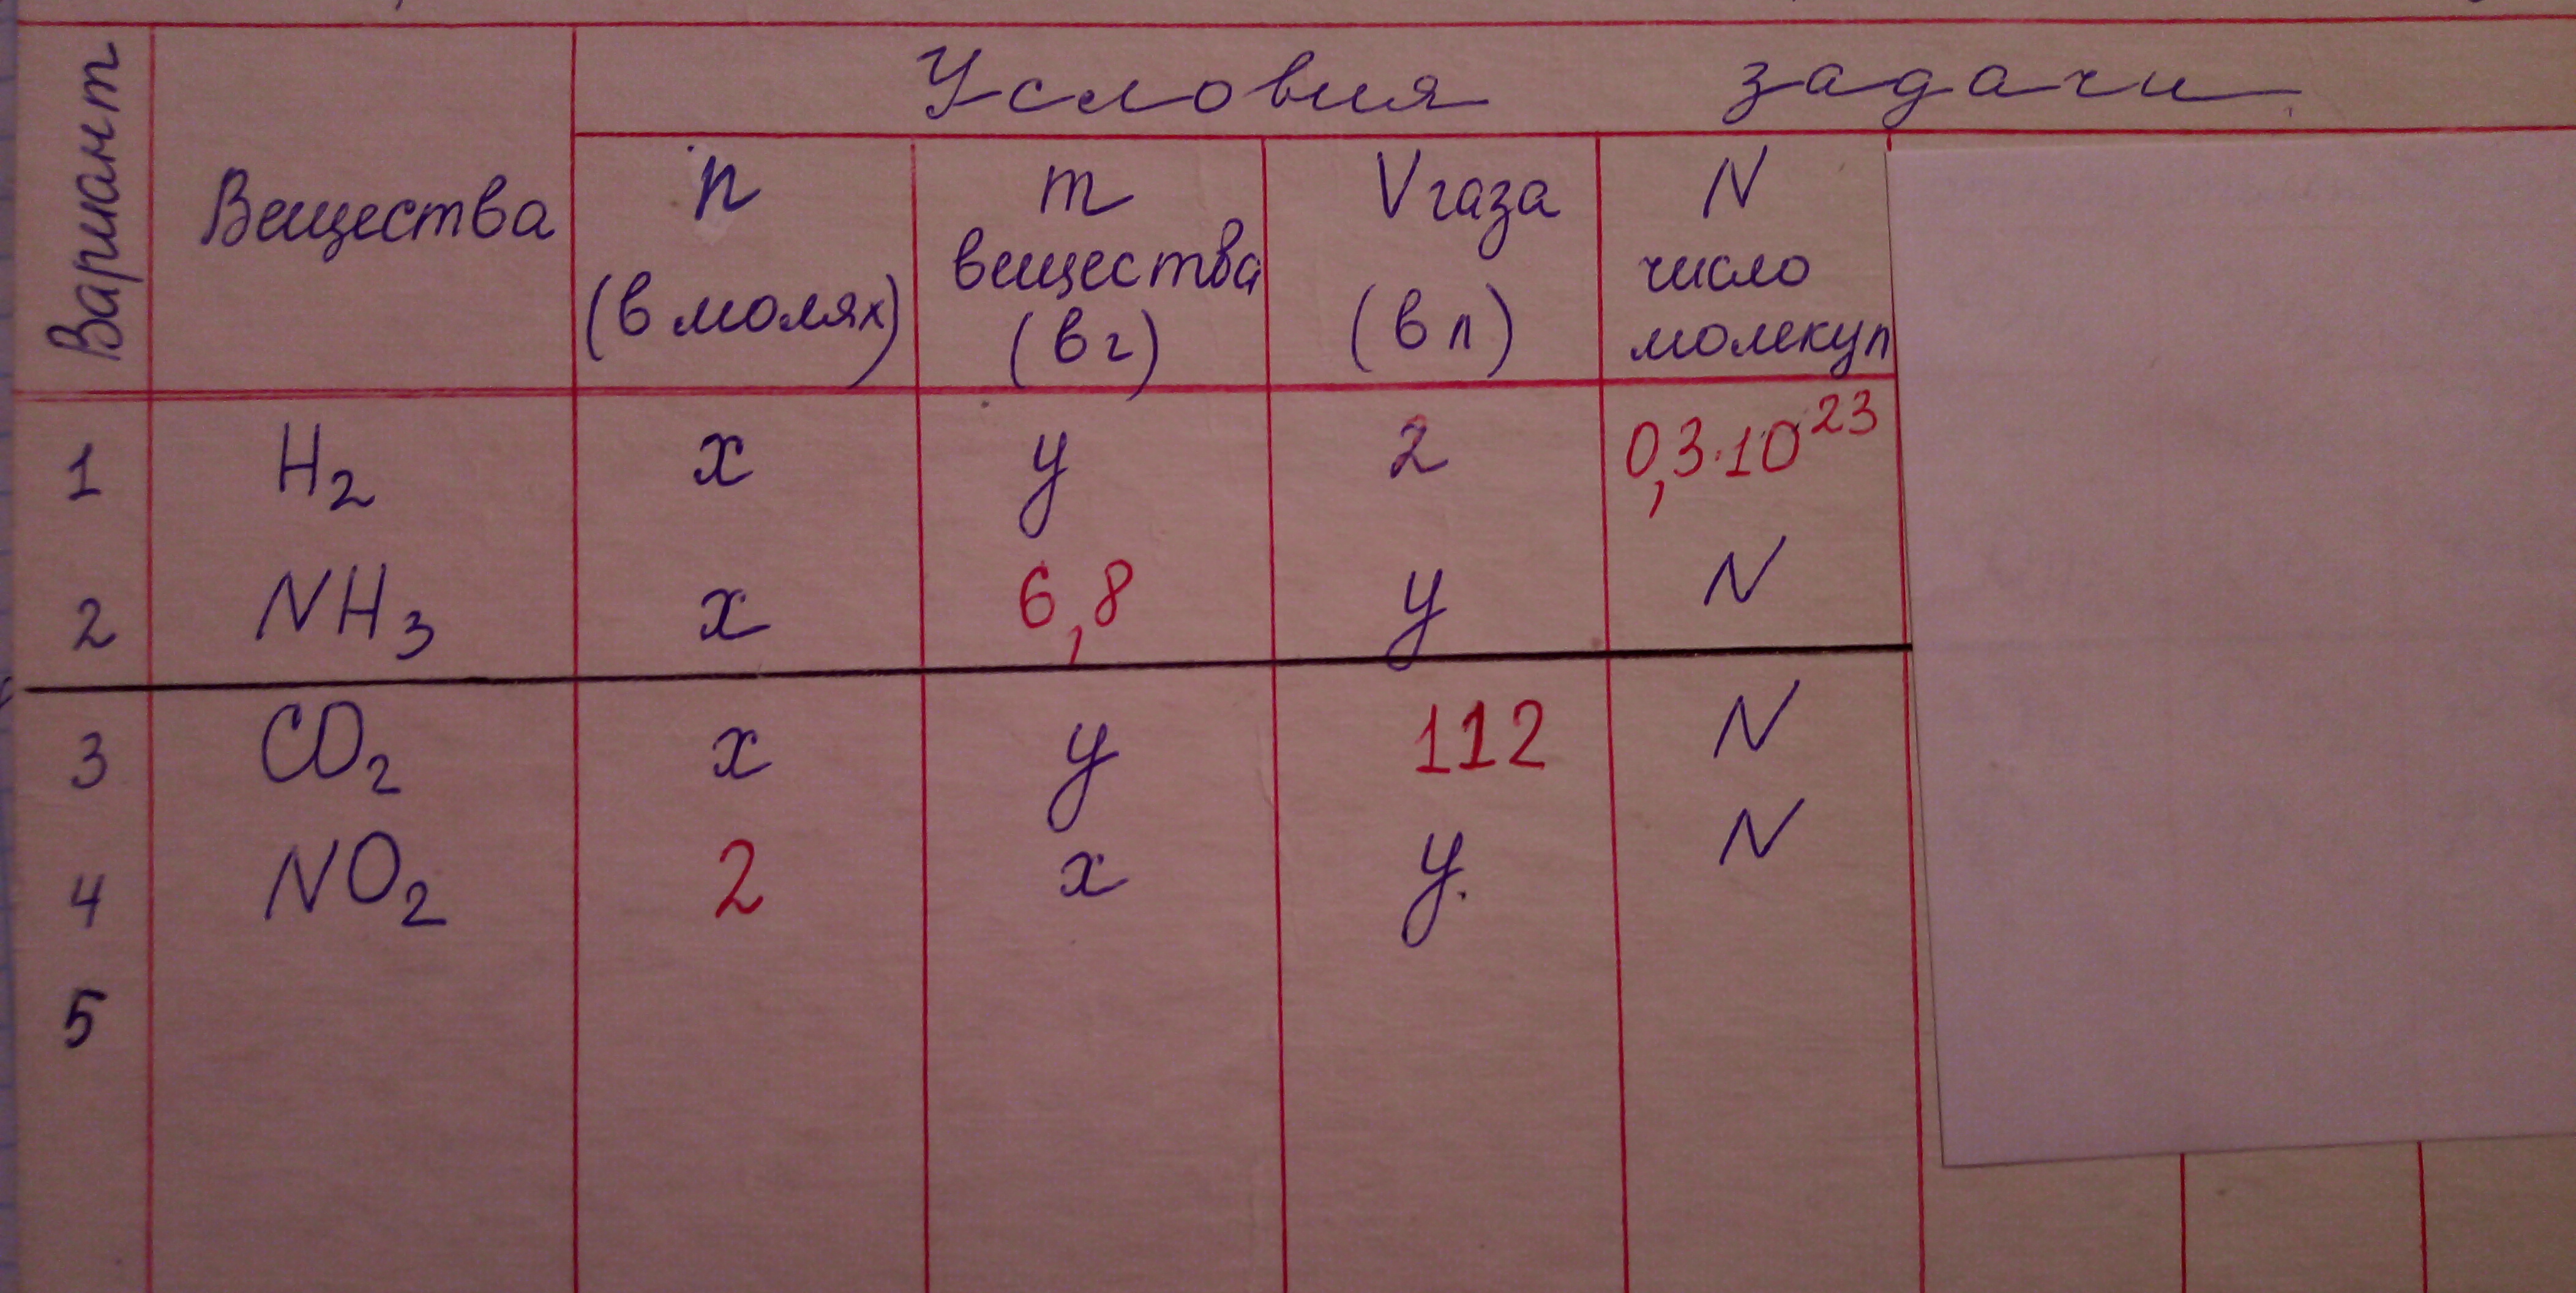 Условия задачи
Вариант
Вещества
n
(в молях)
m
вещества
(в г)
Vгаза
(в л)
N
число
молекул
1 H₂ x y z 0,3·10²³
2 NH₃ x 6,8 y N
3 CO₂ x y 112 N
4 NO₂ 2 x y. N
5